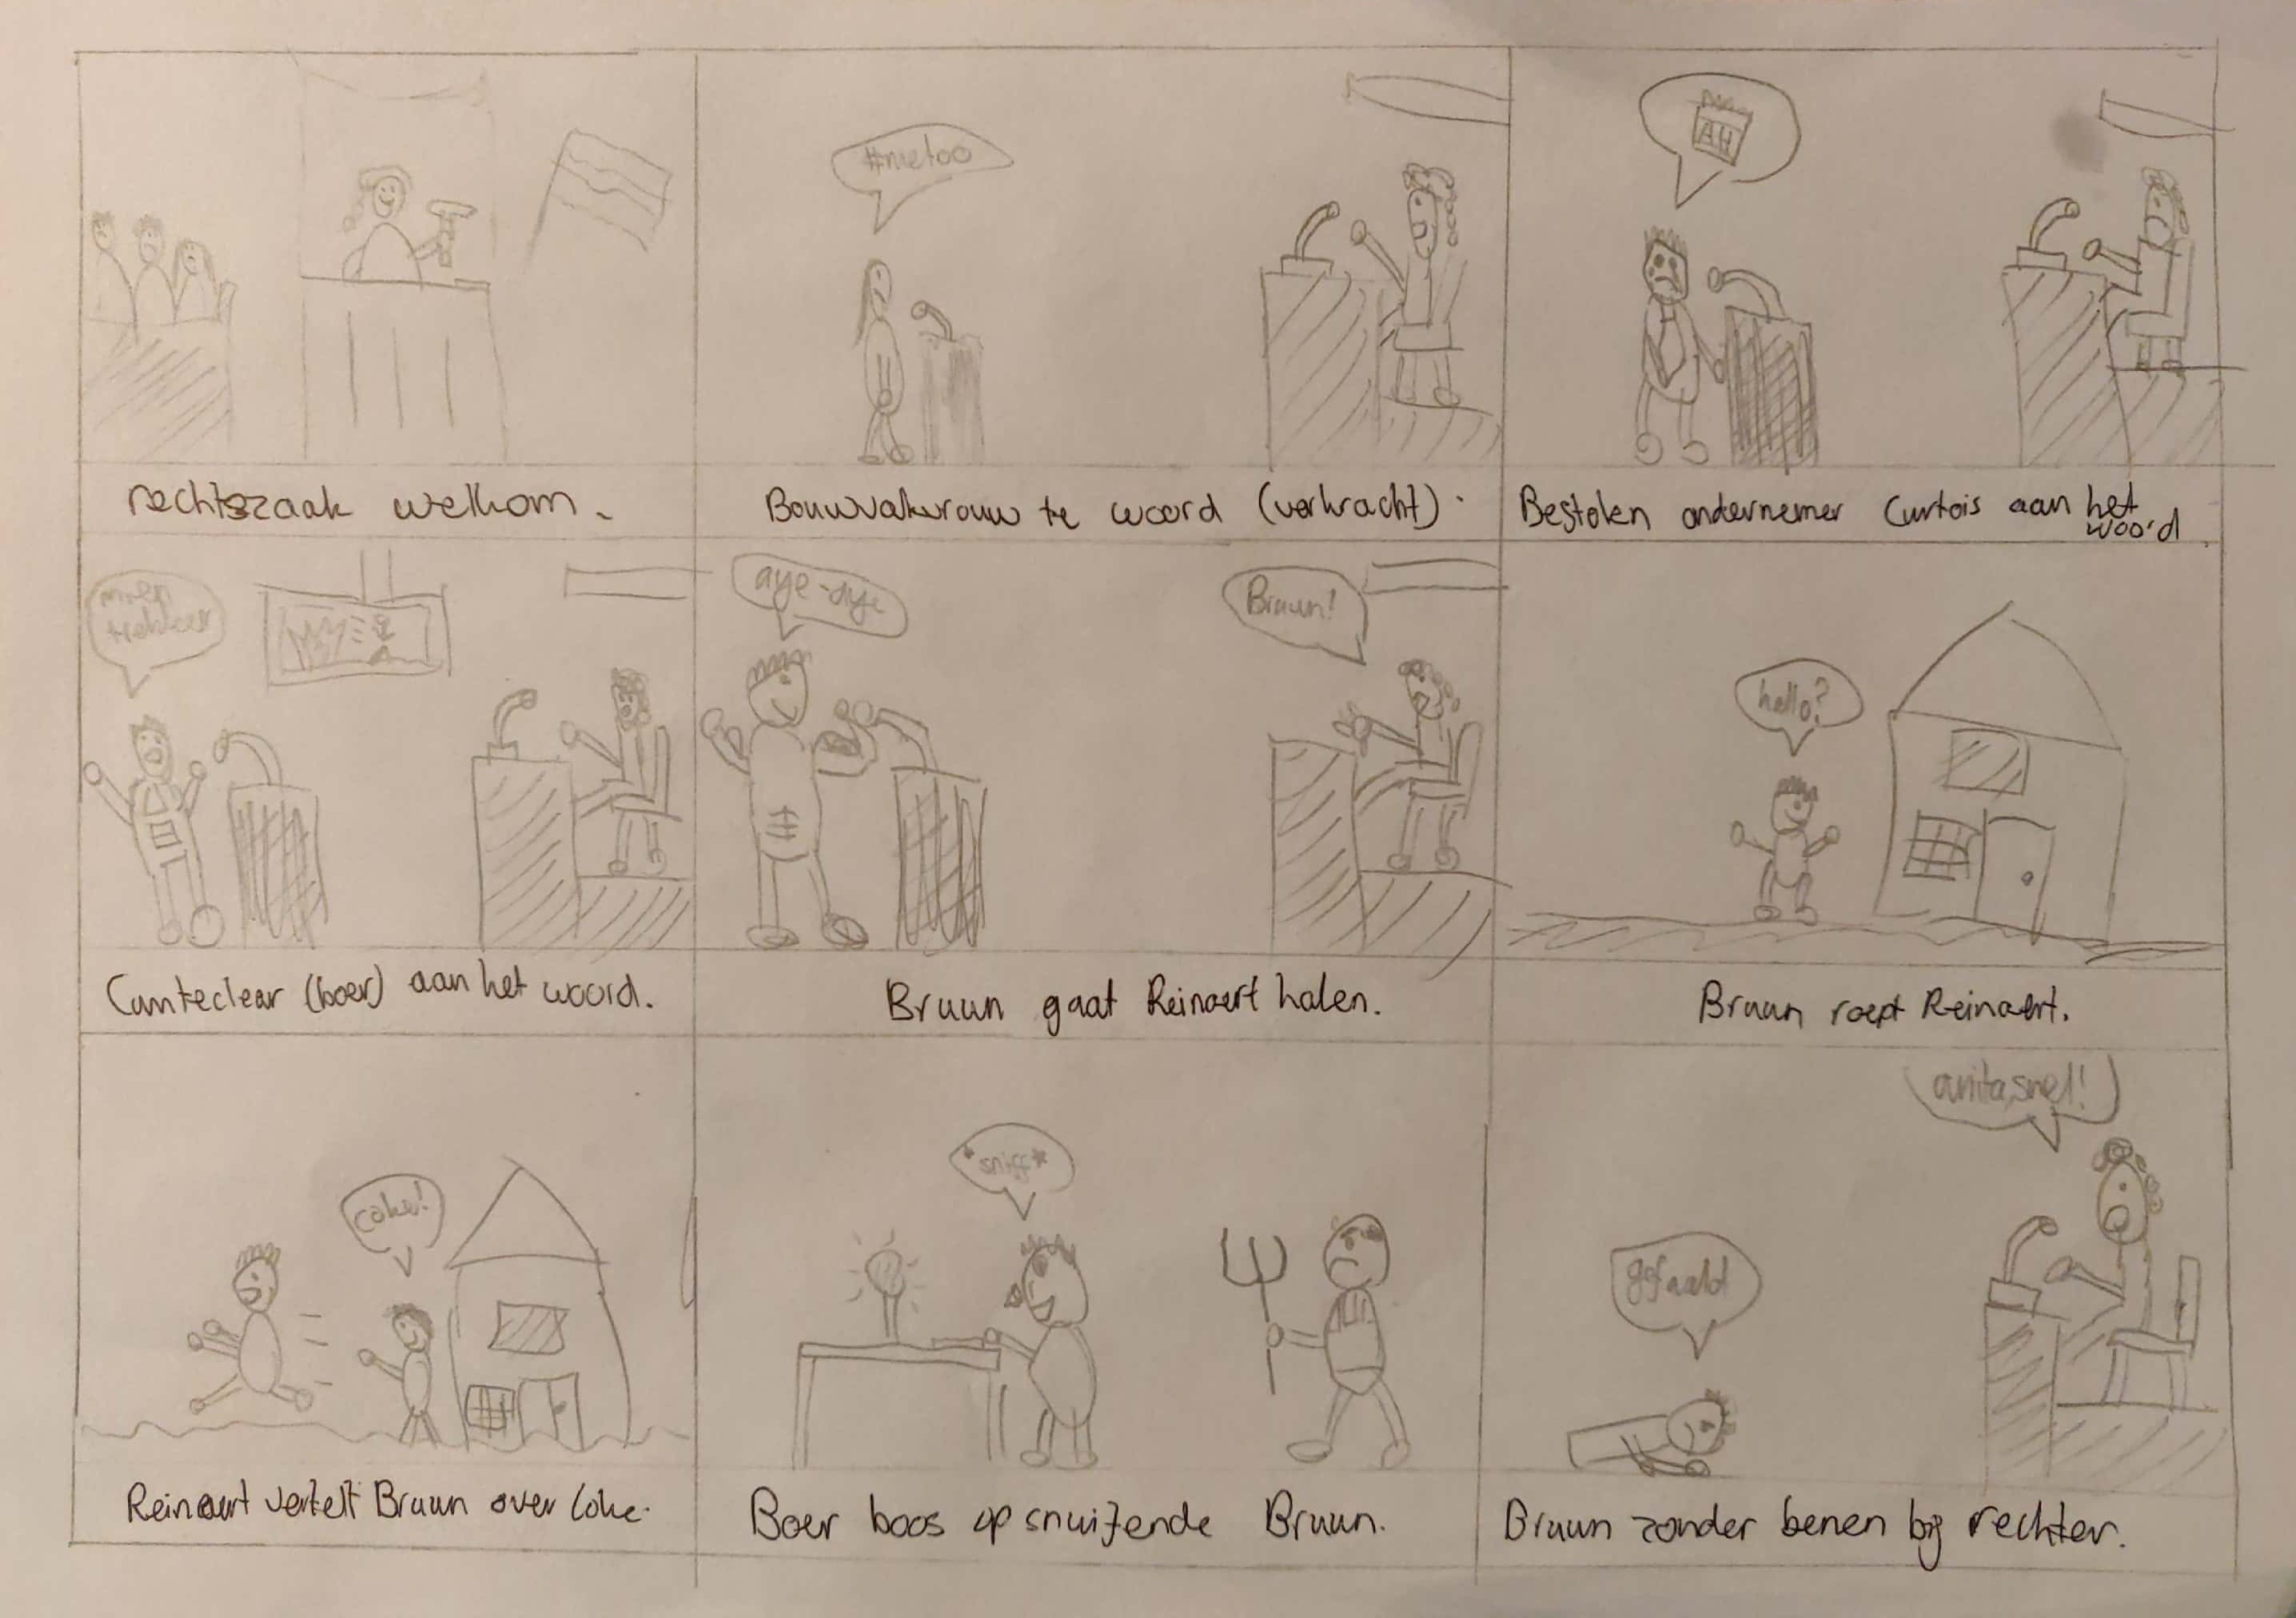 rechtszaak welkom.
#metoo
Bouwvakvrouw te woord (verkracht).
AH
Bestolen ondernemer Curtois aan het
woord.
mijn
trekker
Canteclear (boer) aan het woord.
aye-aye
Bruun!
Bruun gaat Reinaert halen.
hello?
Bruun roept Reinaert.
coke!
Reinaert vertelt Bruun over Coke.
*sniff*
Boer boos op snuifende Bruun.
gefaald
anita,snel!
Bruun zonder benen bij rechter.